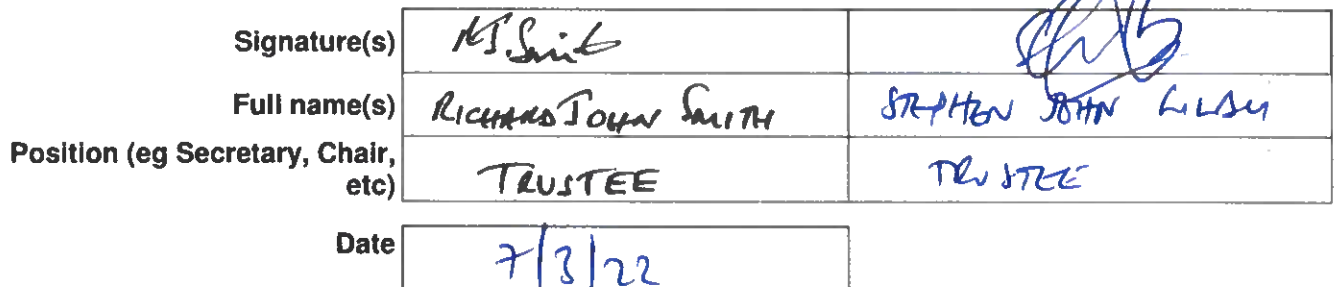 Signature(s) RJ. Smith
Full name(s) RICHARD JOHN SMITH STEPHEN JOHN
Position (eg Secretary, Chair,
etc) TRUSTEE TRUSTEE
Date 7/3/22